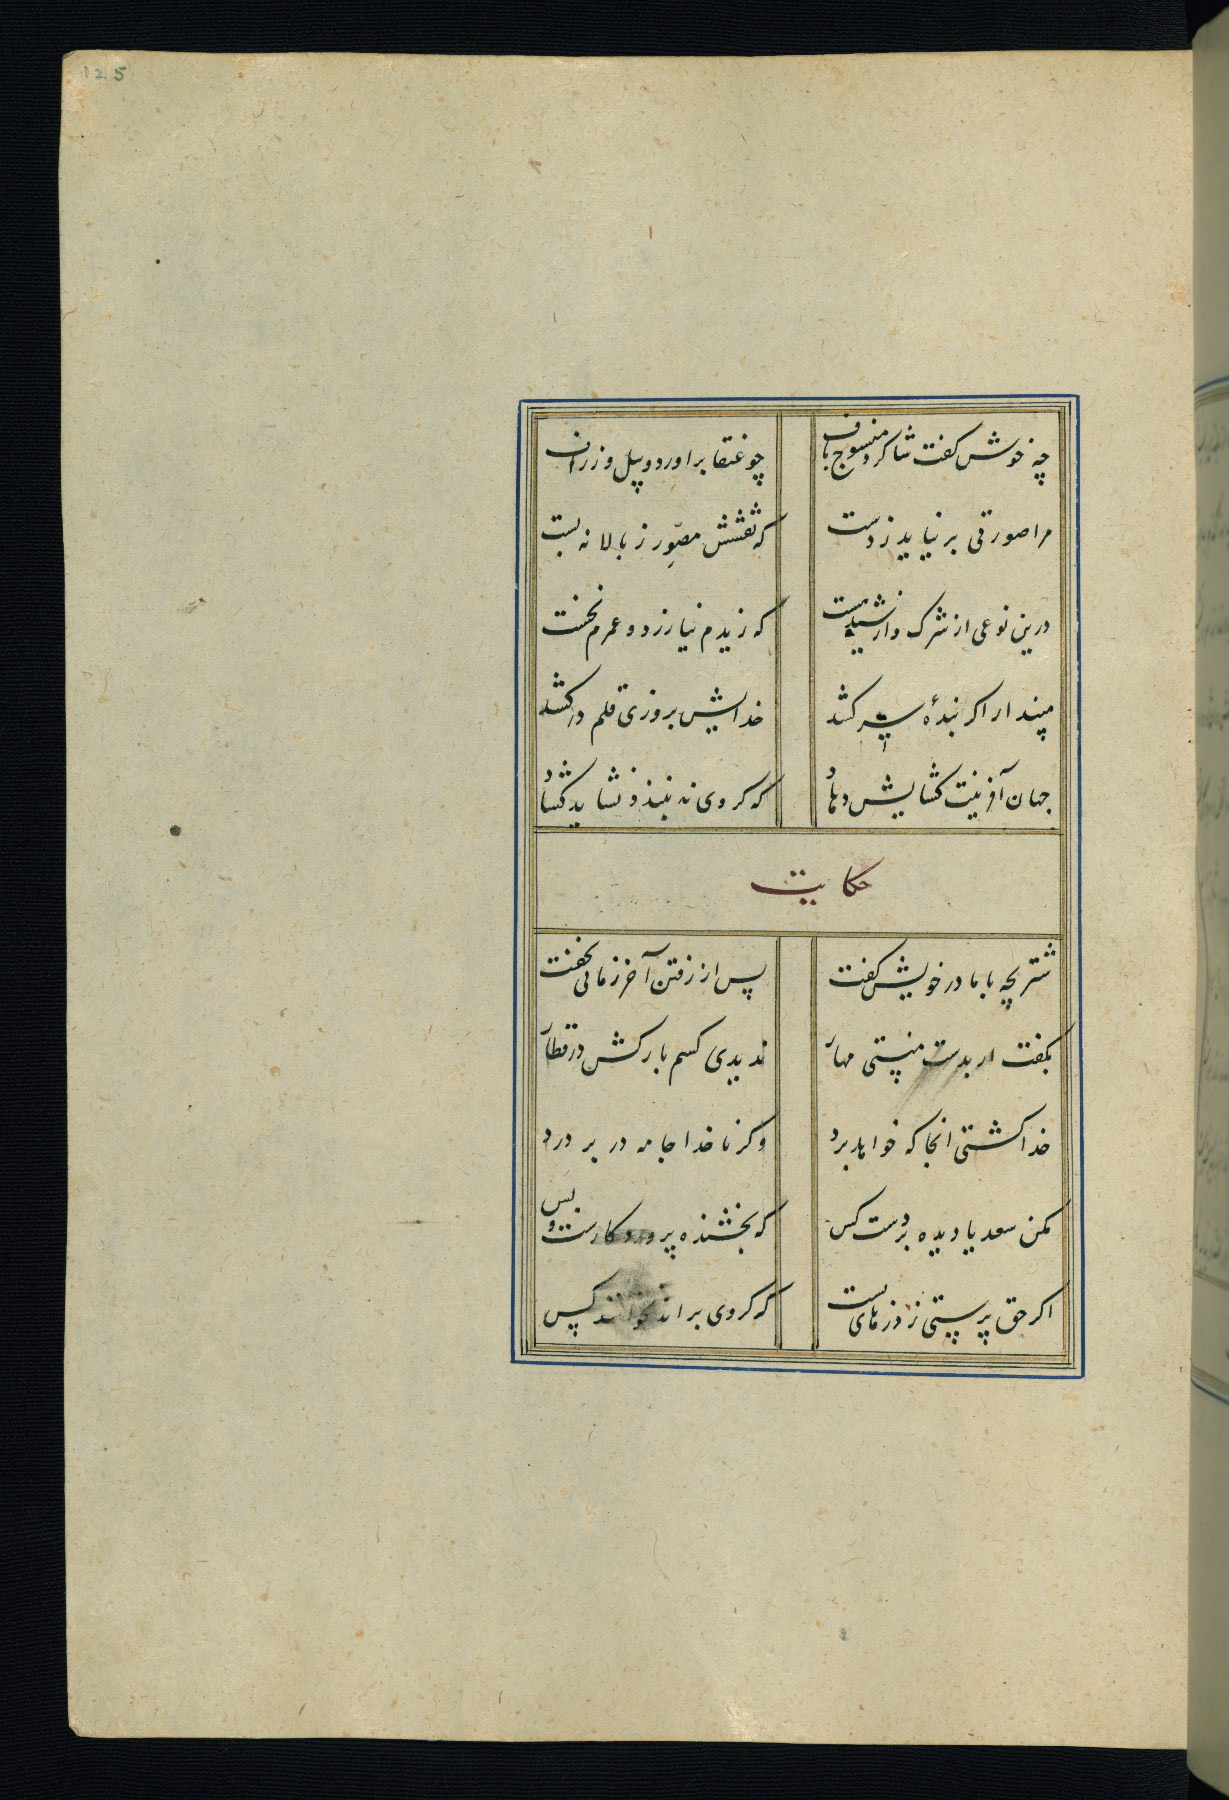 125
چه خوش کفت شاکرد منسوج باف
چو عنقا براورد و پیل و زراف
مرا صورتی بر نیاید ز دست
که نقشش مصوّر ز بالا نه بست
درین نوعی از شرک
که زیدم نیازرد و عمرم نخست
مپندار اکر بندهٔ سر کشد
خدایش بروزی قلم در کشد
جهان آفرینت کشایش دهاد
که کر وی نه بندد نشاید کشاد
حکایت
شتر بچه با مادر خویش کفت
پس از رفتن آخر زمانی بخفت
بکفت ار بدست منستی مهار
ندیدی کسم بارکش در قطار
خدا کشتی انجا که خواهد برد
وکر ناخدا جامه در بر درد
مکن سعدیا دیده بر دست کس
که بخشنده پروردکارست و بس
اکر حق پرستی ز درها بست
که کر وی براند نخواند کس